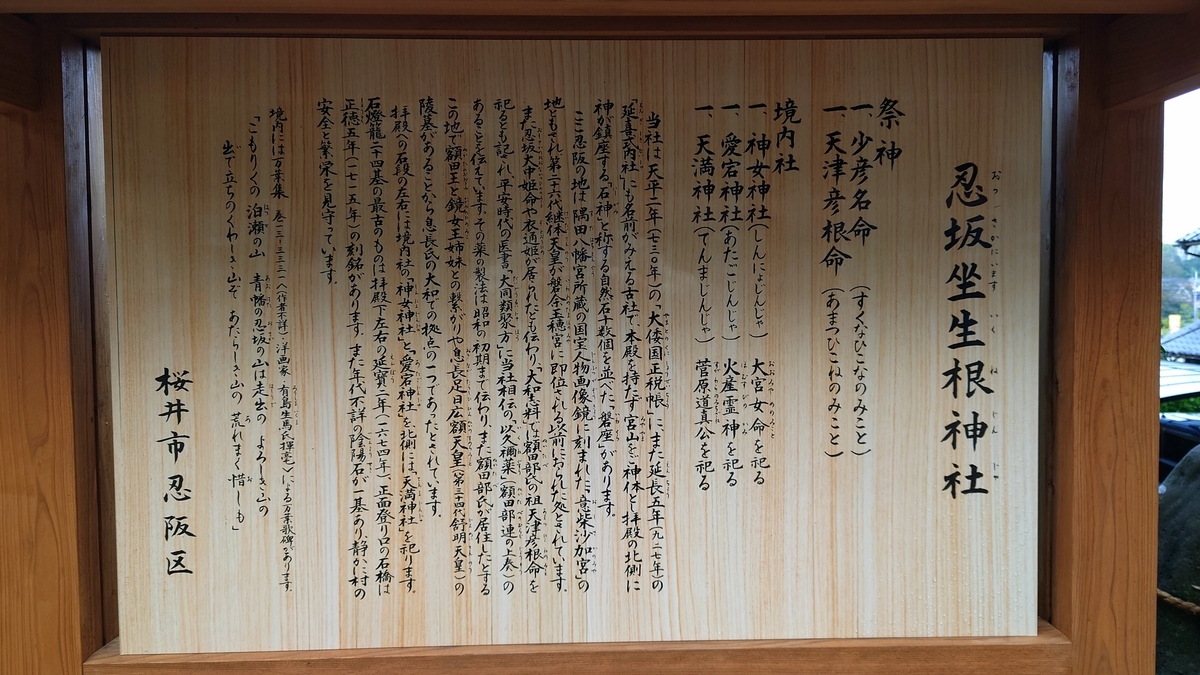 忍坂坐生根神社
祭神
一、少彦名命　（すくなひこなのみこと）
一、天津彦根命　（あまつひこねのみこと）
境内社
一、神女神社（しんにょじんじゃ）　大宮女命を祀る
一、愛宕神社（あたごじんじゃ）　火産霊神を祀る
一、天満神社（てんまじんじゃ）　菅原道真公を祀る
当社は天平二年（七三〇年）の「大倭国正税帳」に、また延長五年（九二七年）の
「延喜式内社」にも名前がみえる古社で、本殿を持たず宮山をご神体とし拝殿の北側に
神が鎮座する「石神」と称する自然石十数個を並べた「磐座」があります。
ここ忍阪の地は、隅田八幡宮所蔵の国宝人物画像鏡に刻まれた「意柴沙加宮」の
地ともされ、第二十六代継体天皇が磐余玉穂宮に即位される以前におられた処とされています。
また、忍坂大中姫命や衣通姫が居られたとも伝わり、「大和志料」では額田部氏の祖天津彦根命を
祀るとも記され、平安時代の医書「大同類聚方」に当社相伝の「以久禰薬」（額田部連の上奏）の
あることを伝えています。その薬の製法は昭和の初期まで伝わり、また額田部氏が居住したとする
この地で額田王と鏡女王姉妹との繋がりや息長足日広額天皇（第三十四代舒明天皇）の
陵墓があることから息長氏の大和での拠点の一つであったとされています。
拝殿への石段の左右には境内社の「神女神社」と「愛宕神社」を、北側には「天満神社」を祀ります。
石燈籠二十四基の最古のものは拝殿下左右の延寶二年（一六七四年）、正面登り口の石橋は
正徳五年（一七一五年）の刻銘があります。また年代不詳の陰陽石が一基あり、静かに村の
安全と繁栄を見守っています。
境内には万葉集　巻一三-三三三一へ（作者不詳）・洋画家　有島生馬氏揮毫）による万葉歌碑があります。
「こもりくの　泊瀬の山　青幡の忍坂の山は走出の　よろしき山の
出で立ちのくわしき山ぞ　あたらしき山の　荒れまく惜しも」
桜井市忍阪区